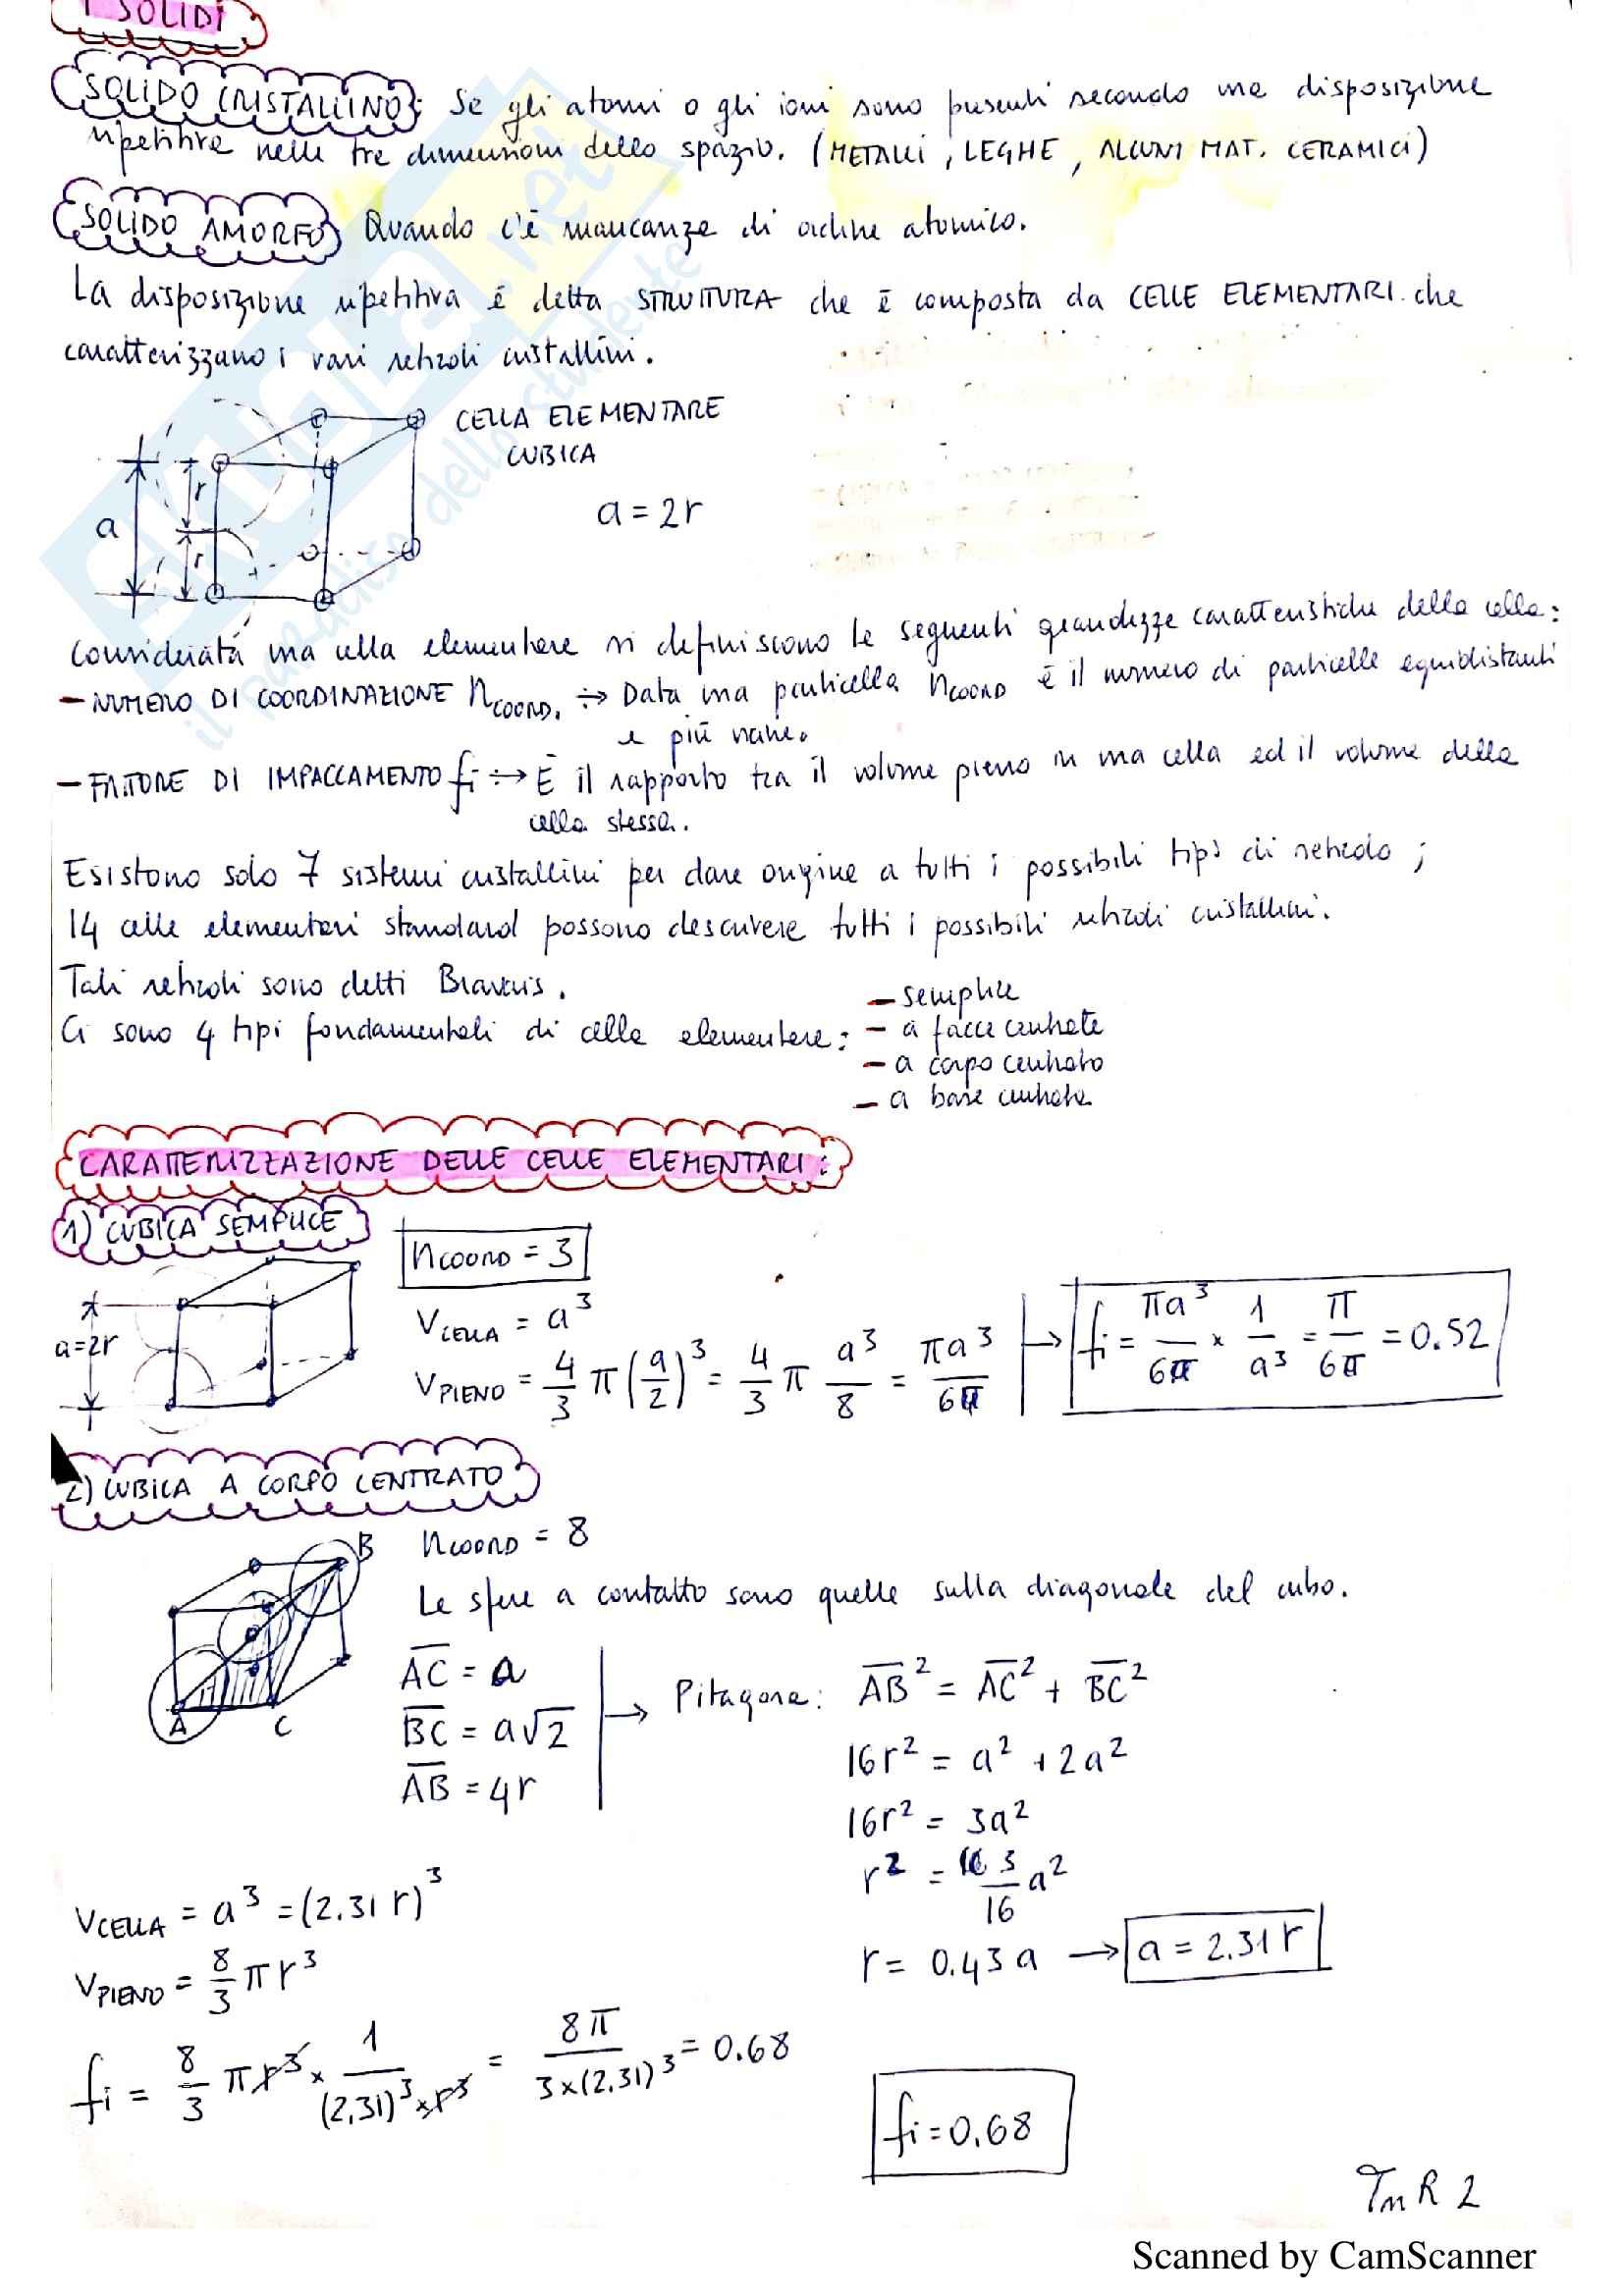 I SOLIDI
SOLIDO CRISTALLINO: Se gli atomi o gli ioni sono presenti secondo una disposizione
ripetitiva nelle tre dimensioni dello spazio. (METALLI, LEGHE, ALCUNI MAT. CERAMICI)
SOLIDO AMORFO Quando c'è mancanza di ordine atomico.
La disposizione ripetitiva è detta STRUTTURA che è composta da CELLE ELEMENTARI che
caratterizzano i vari reticoli cristallini.
SKUOLA.net
il paradiso dello studente
CELLA ELEMENTARE
CUBICA
a = 2r
a
r
r
Considerata una cella elementare si definiscono le seguenti grandezze caratteristiche della cella:
- NUMERO DI COORDINAZIONE nCOORD. ÷> Data una particella nCOORD è il numero di particelle equidistanti
e più vicine.
- FATTORE DI IMPACCAMENTO fi ÷> È il rapporto tra il volume pieno in una cella ed il volume della
cella stessa.
Esistono solo 7 sistemi cristallini per dare origine a tutti i possibili tipi di reticolo;
14 celle elementari standard possono descrivere tutti i possibili reticoli cristallini.
Tali reticoli sono detti Bravais.
Ci sono 4 tipi fondamentali di cella elementare:
- semplice
- a facce centrate
- a corpo centrato
- a base centrata
CARATTERIZZAZIONE DELLE CELLE ELEMENTARI:
1) CUBICA SEMPLICE
nCOORD = 3
a=2r
VCELLA = a³
VPIENO = 4/3 π (a/2)³ = 4/3 π a³/8 = πa³/6
fi = πa³/6 × 1/a³ = π/6 = 0.52
2) CUBICA A CORPO CENTRATO
nCOORD = 8
A
B
C
Le sfere a contatto sono quelle sulla diagonale del cubo.
AC = a
BC = a√2
AB = 4r
Pitagora: AB² = AC² + BC²
16r² = a² + 2a²
16r² = 3a²
r² = 3/16 a²
r = 0.43 a → a = 2.31 r
VCELLA = a³ = (2.31 r)³
VPIENO = 8/3 π r³
fi = 8/3 π r³ × 1/(2,31)³ × r³ = 8π/3×(2,31)³ = 0.68
fi = 0.68
TmR 2
Scanned by CamScanner